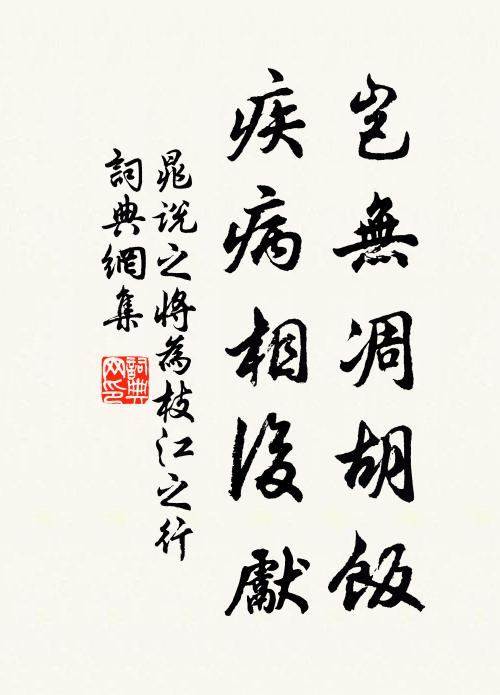 豈無凋胡飯
疾病相後獻
晁說之將為枝江之行
詞典網集
詞典
網印